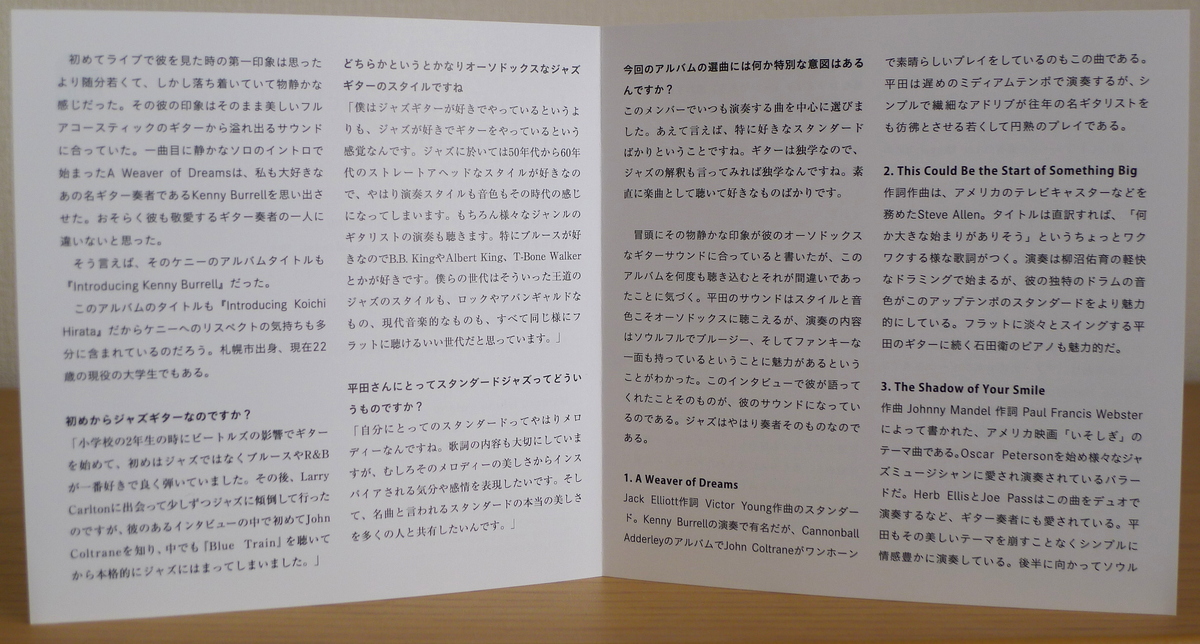 初めてライブで彼を見た時の第一印象は思った
より随分若くて、しかし落ち着いていて物静かな
感じだった。その彼の印象はそのまま美しいフル
アコースティックのギターから溢れ出るサウンド
に合っていた。一曲目に静かなソロのイントロで
始まったA Weaver of Dreamsは、私も大好きな
あの名ギター奏者であるKenny Burrellを思い出さ
せた。おそらく彼も敬愛するギター奏者の一人に
違いないと思った。
そう言えば、そのケニーのアルバムタイトルも
『Introducing Kenny Burrell』だった。
このアルバムのタイトルも『Introducing Koichi
Hirata』だからケニーへのリスペクトの気持ちも多
分に含まれているのだろう。札幌市出身、現在22
歳の現役の大学生でもある。
初めからジャズギターなのですか?
「小学校の2年生の時にビートルズの影響でギター
を始めて、初めはジャズではなくブルースやR&B
が一番好きで良く弾いていました。その後、Larry
Carltonに出会って少しずつジャズに傾倒して行った
のですが、彼のあるインタビューの中で初めてJohn
Coltraneを知り、中でも『Blue Train』を聴いて
から本格的にジャズにはまってしまいました。」
どちらかというとかなりオーソドックスなジャズ
ギターのスタイルですね
「僕はジャズギターが好きでやっているというよ
りも、ジャズが好きでギターをやっているという
感覚なんです。ジャズに於いては50年代から60年
代のストレートアヘッドなスタイルが好きなの
で、やはり演奏スタイルも音色もその時代の感じ
になってしまいます。もちろん様々なジャンルの
ギタリストの演奏も聴きます。特にブルースが好
きなのでB.B. KingやAlbert King、T-Bone Walker
とかが好きです。僕らの世代はそういった王道の
ジャズのスタイルも、ロックやアバンギャルドな
もの、現代音楽的なものも、すべて同じ様にフ
ラットに聴けるいい世代だと思っています。」
平田さんにとってスタンダードジャズってどうい
うものですか?
「自分にとってのスタンダードってやはりメロ
ディーなんですね。歌詞の内容も大切にしていま
すが、むしろそのメロディーの美しさからインス
パイアされる気分や感情を表現したいです。そし
て、名曲と言われるスタンダードの本当の美しさ
を多くの人と共有したいんです。」
今回のアルバムの選曲には何か特別な意図はある
んですか?
このメンバーでいつも演奏する曲を中心に選びま
した。あえて言えば、特に好きなスタンダード
ばかりということですね。ギターは独学なので、
ジャズの解釈も言ってみれば独学なんですね。素
直に楽曲として聴いて好きなものばかりです。
冒頭にその物静かな印象が彼のオーソドックス
なギターサウンドに合っていると書いたが、この
アルバムを何度も聴き込むとそれが間違いであっ
たことに気づく。平田のサウンドはスタイルと音
色こそオーソドックスに聴こえるが、演奏の内容
はソウルフルでブルージー、そしてファンキーな
一面も持っているということに魅力があるという
ことがわかった。このインタビューで彼が語って
くれたことそのものが、彼のサウンドになってい
るのである。ジャズはやはり奏者そのものなので
ある。
1. A Weaver of Dreams
Jack Elliott作詞 Victor Young作曲のスタンダー
ド。Kenny Burrellの演奏で有名だが、Cannonball
AdderleyのアルバムでJohn Coltraneがワンホーン
で素晴らしいプレイをしているのもこの曲である。
平田は遅めのミディアムテンポで演奏するが、シ
ンプルで繊細なアドリブが往年の名ギタリストを
も彷彿とさせる若くして円熟のプレイである。
2. This Could Be the Start of Something Big
作詞作曲は、アメリカのテレビキャスターなどを
務めたSteve Allen。タイトルは直訳すれば、「何
か大きな始まりがありそう」というちょっとワク
ワクする様な歌詞がつく。演奏は柳沼佑育の軽快
なドラミングで始まるが、彼の独特のドラムの音
色がこのアップテンポのスタンダードをより魅力
的にしている。フラットに淡々とスイングする平
田のギターに続く石田衛のピアノも魅力的だ。
3. The Shadow of Your Smile
作曲 Johnny Mandel 作詞 Paul Francis Webster
によって書かれた、アメリカ映画「いそしぎ」の
テーマ曲である。Oscar Petersonを始め様々なジャ
ズミュージシャンに愛され演奏されているバラー
ドだ。Herb EllisとJoe Passはこの曲をデュオで
演奏するなど、ギター奏者にも愛されている。平
田もその美しいテーマを崩すことなくシンプルに
情感豊かに演奏している。後半に向かってソウル